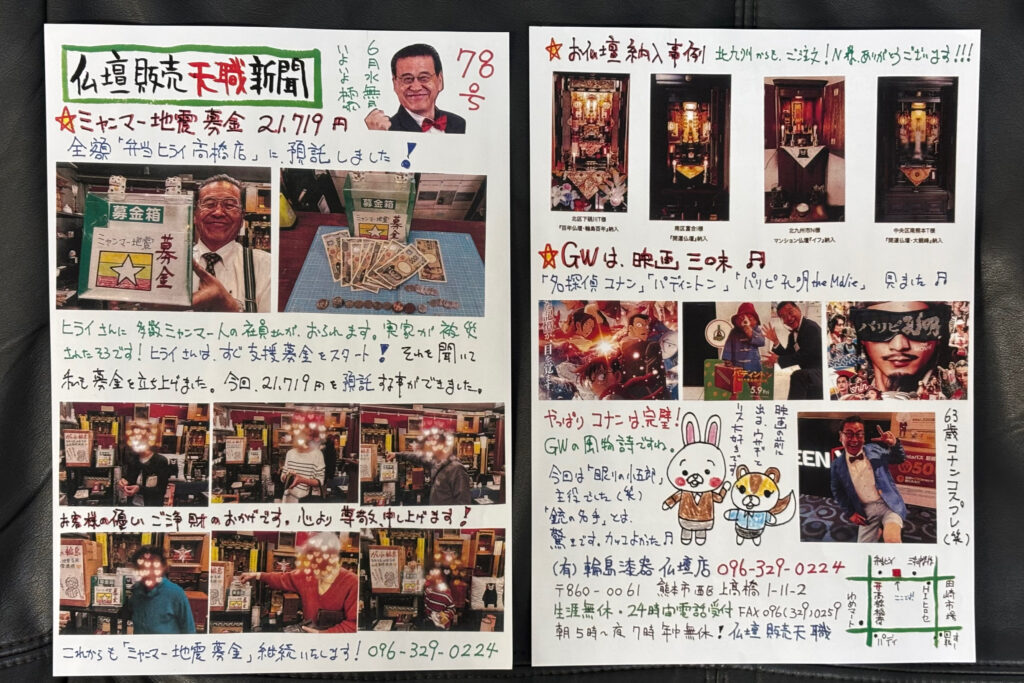 仏壇販売天職新聞
6月水無月
いよいよ
78号
☆ミャンマー地震募金 21,719円
全額「弁当ヒライ高橋店」に、預託しました!
募金箱
ミャンマー地震
募金
募金箱
ミャンマー地震
募金
ヒライさんに多数ミャンマー人の社員さんが、おられます。実家が被災
されたそうです!ヒライさんは、すぐ支援募金をスタート!それを聞いて
私も募金を立ち上げました。今回、21,719円を預託する事ができました。
お客様の優しいご浄財のおかげです。心より尊敬申し上げます!
これからも「ミャンマー地震募金」継続いたします! 096-329-0224
☆お仏壇納入事例 北九州からも、ご注文!N様、ありがとうございます!!!
北区下硯川T様
『百年仏壇・輪島百年』納入
南区富合I様
『開運仏壇』納入
北九州市N様
マンション仏壇『イフ』納入
中央区南熊本T様
『開運仏壇・大観峰』納入
☆GWは、映画三昧♬
「名探偵コナン」「パディントン」「パリピ孔明the Movie」 見ました♬
パディントン
5.9
パリピ孔明
やっぱりコナンは完璧!
GWの風物詩ですね。
今回は「眠りの小五郎」
主役でした(笑)
「銃の名手」とは、
驚きです。カッコよかった♬
映画の前に
出る、ウサギと
リス大好きです
63歳コナンコスプレ(笑)
(有)輪島漆器仏壇店 096-329-0224
〒860-0061 熊本市西区上高橋1-11-2
生涯無休・24時間電話受付 FAX 096(329)0259
朝5時~夜7時 年中無休!仏壇販売天職
ここです!
田崎市場
ゆめマート
パティ